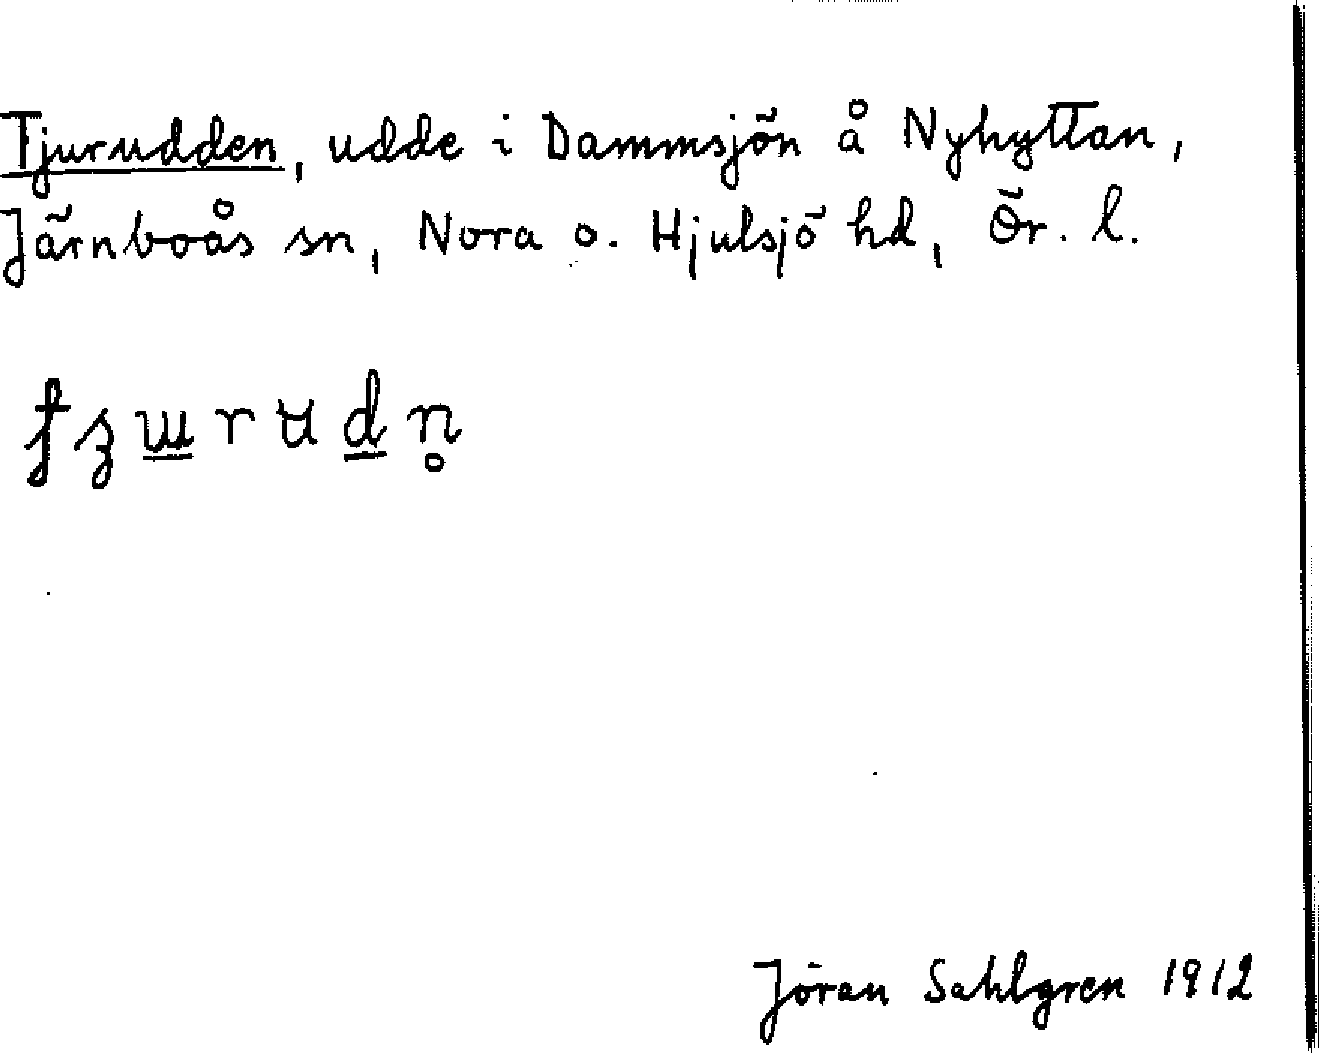 Tjurudden, udde i Dammsjön å Nyhyttan,
Järnboås sn, Nora o. Hjulsjö hd, Ör. l.
Jöran Sahlgren 1912